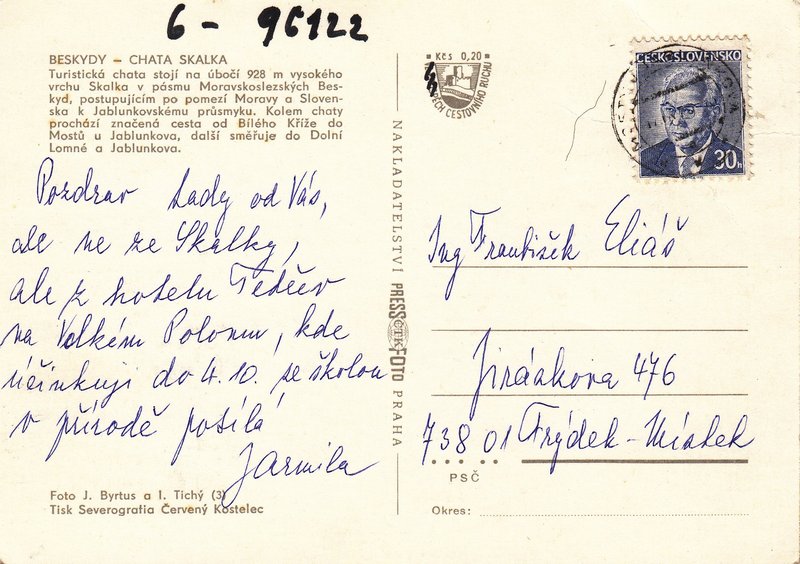 6 - 96122
BESKYDY – CHATA SKALKA
Turistická chata stojí na úbočí 928 m vysokého
vrchu Skalka v pásmu Moravskoslezských Bes-
kyd, postupujícím po pomezí Moravy a Sloven-
ska k Jablunkovskému průsmyku. Kolem chaty
prochází značená cesta od Bílého Kříže do
Mostů u Jablunkova, další směřuje do Dolní
Lomné a Jablunkova.
Pozdrav Lady od Vás,
ale ne ze Skalky,
ale z hotelu
na Velkém Polomu, kde
účinkuji do 4. 10. se školou
v přírodě posílá
Jarmila
Foto J. Byrtus a I. Tichý (3)
Tisk Severografia Červený Kostelec
NAKLADATELSTVÍ PRESSFOTO PRAHA
ČTK
Kčs 0,20
CESTOVNÍHO RUCHU
ČESKOSLOVENSKO
30h
Ing František Eliáš
Jiráskova 476
738 01 Frýdek-Místek
PSČ
Okres: